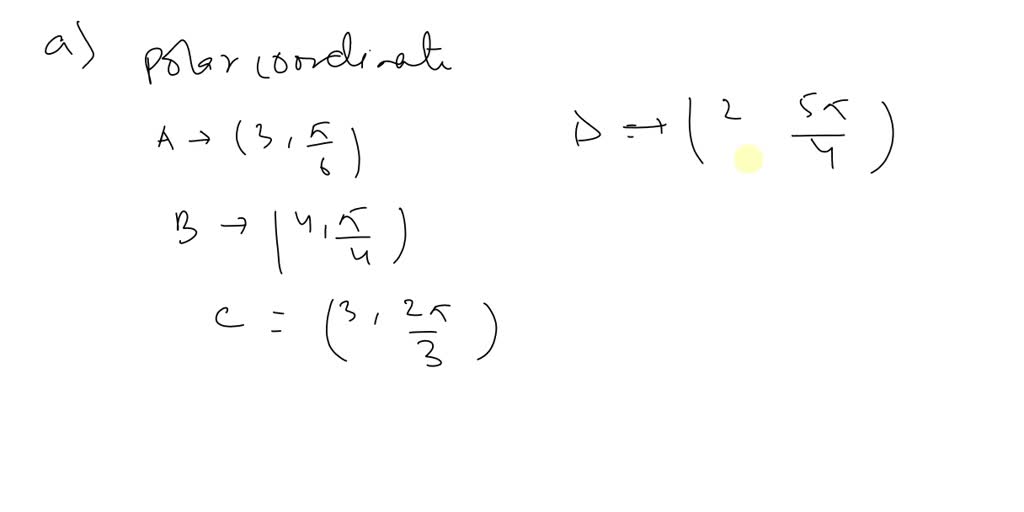 a) polar coordinate
A → (3, π/6)
B → (4, π/4)
C = (3, 2π/3)
D ⇒ (2 5π/4)